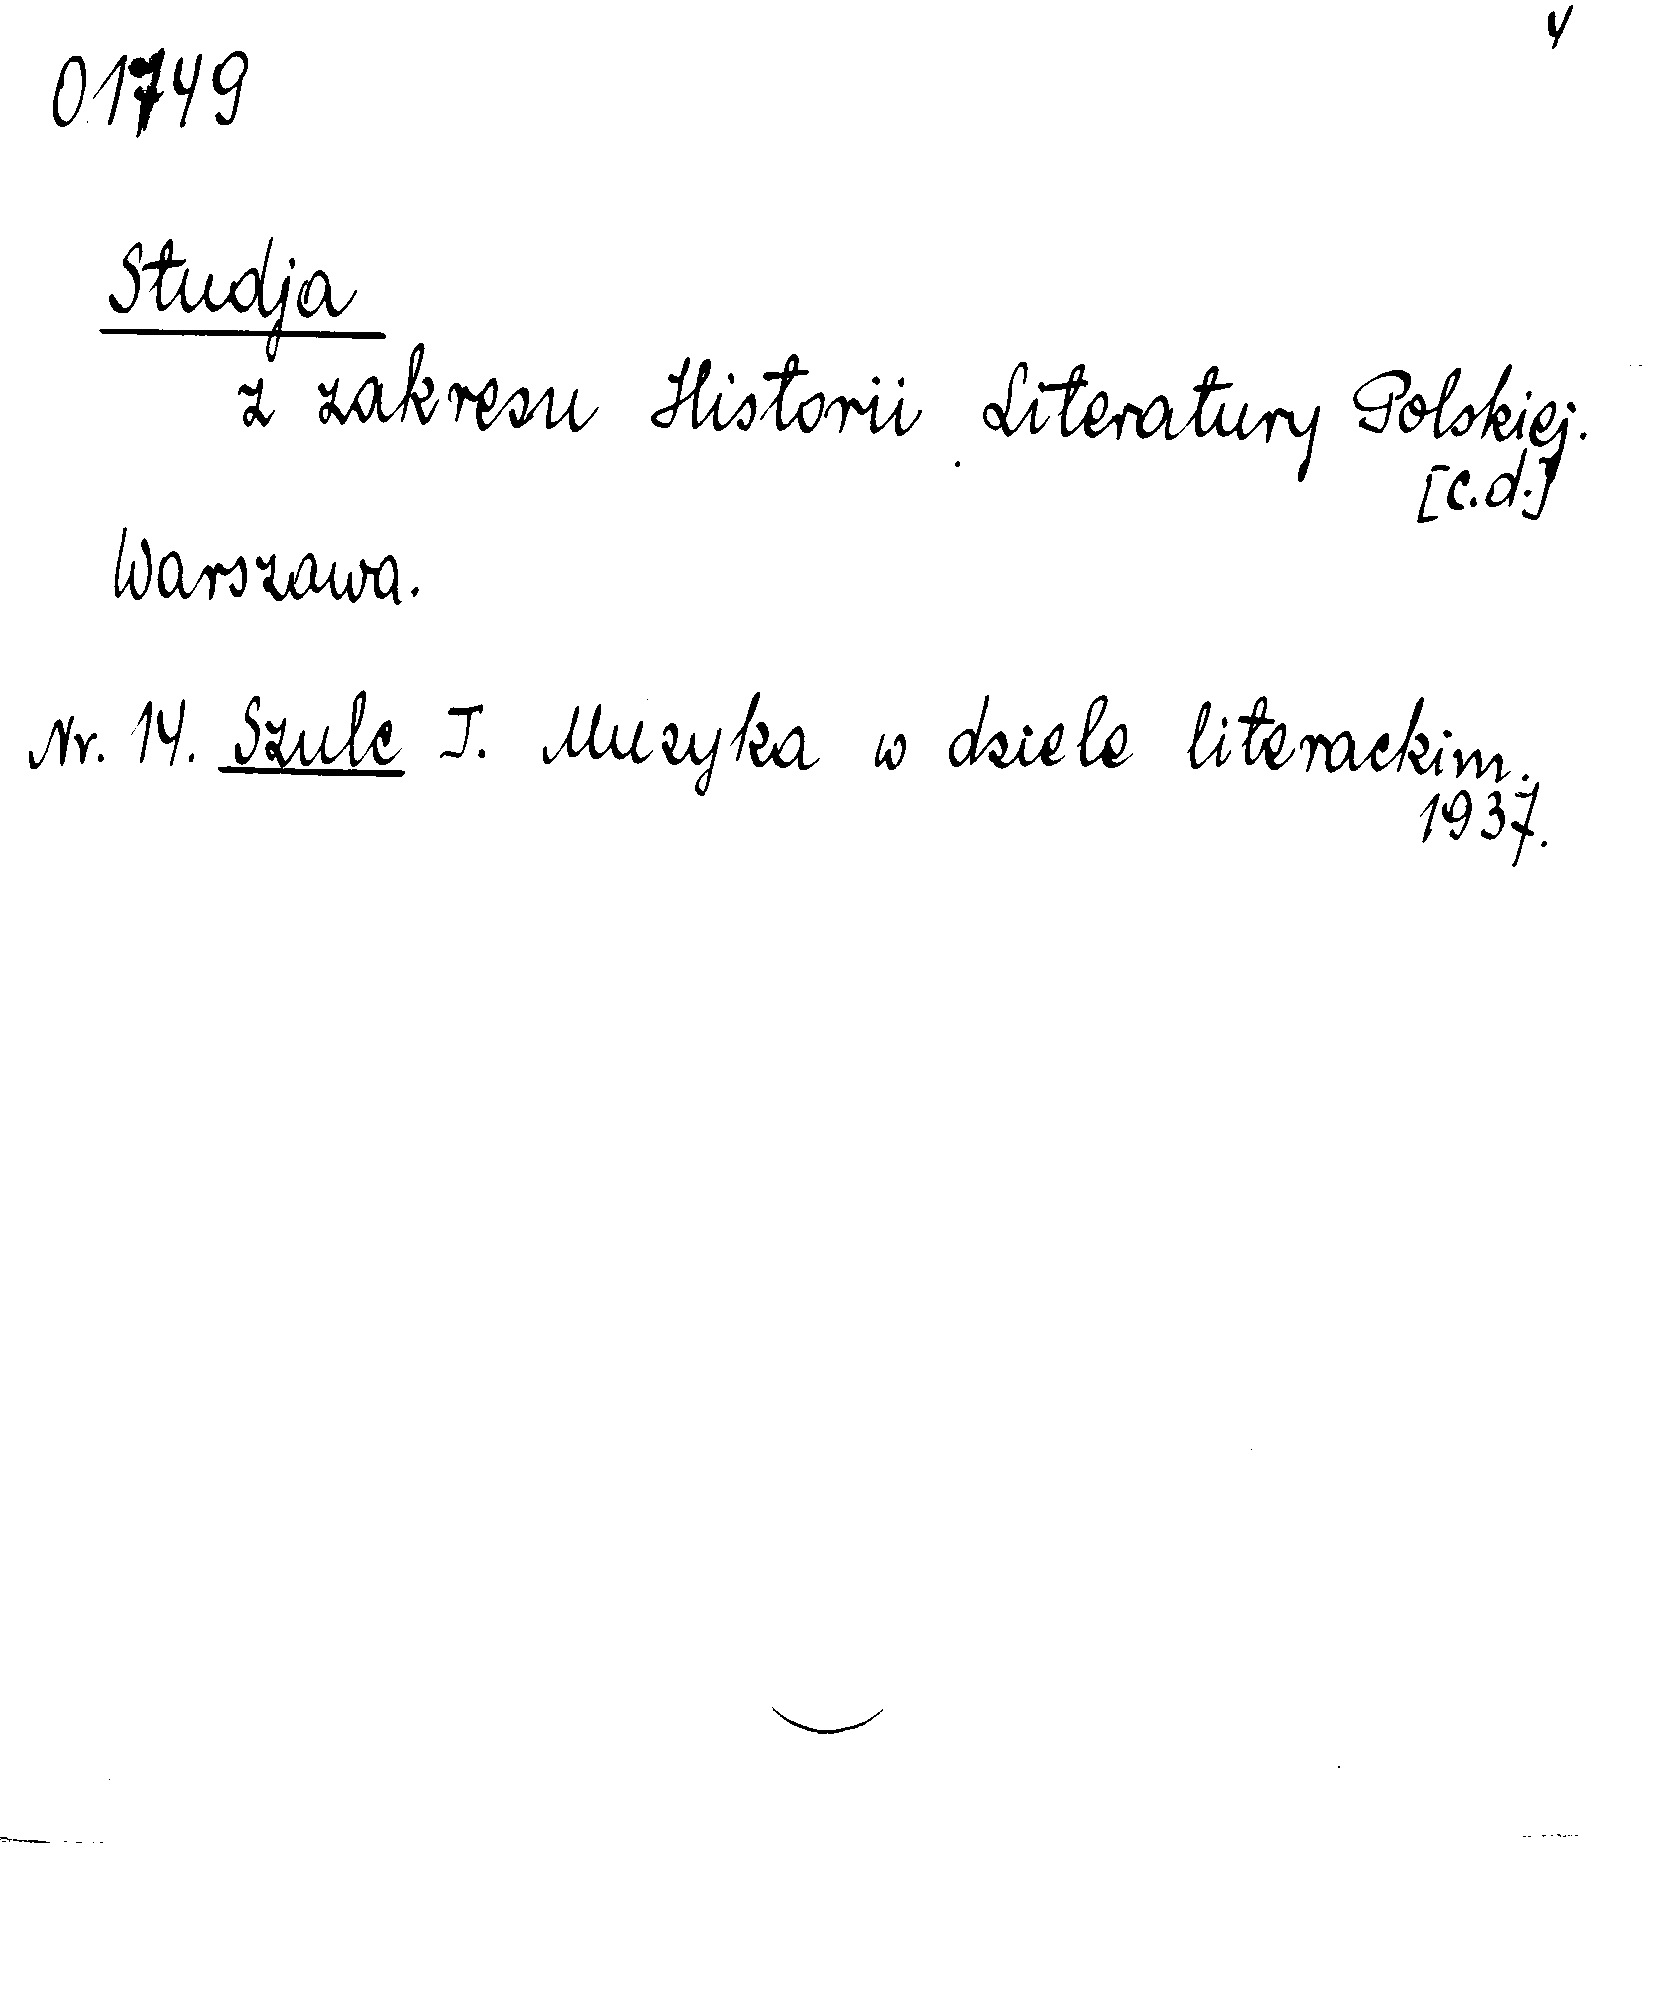 4
01749
Studja
z zakresu Historii Literatury Polskiej.
[c.d.]
Warszawa.
Nr. 14. Szulc J. Muzyka w dziele literackim.
1937.